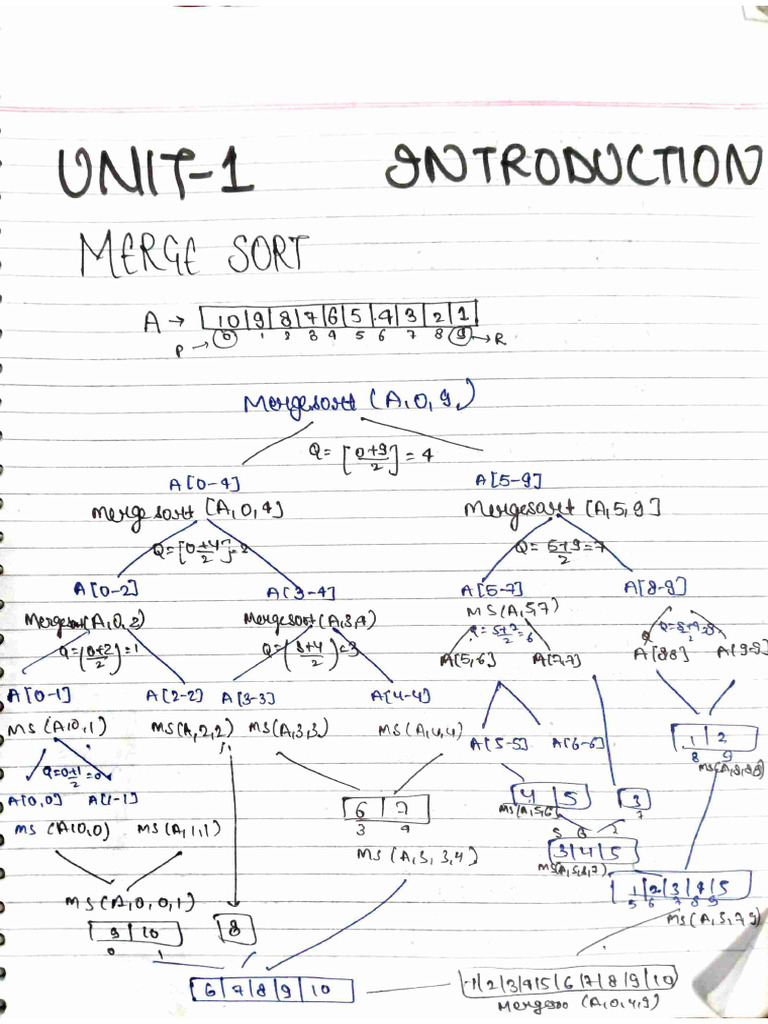 UNIT-1 INTRODUCTION
MERGE SORT
A → 10 9 8 7 6 5 4 3 2 1
P → 0 1 2 3 4 5 6 7 8 9 → R
Mergesort (A,0,9,)
Q = [0+9/2] = 4
A[0-4] A[5-9]
Merge sort [A,0,4] Mergesort [A,5,9]
Q=[0+4/2]=2 Q= 5+9/2=7
A[0-2] A[3-4] A[5-7] A[8-9]
Mergesort(A,0,2) Mergesort(A,3,4) MS(A,5,7)
Q=(0+2/2)=1 Q=(3+4/2)=3 Q= 5+7/2=6
A[5,6] A[7,7] A[88] A[9-9]
A[0-1] A[2-2] A[3-3] A[4-4]
MS (A10,1) MS(A,2,2) MS(A,3,3) MS(A,4,4) A[5-5] A[6-6] 1 2
8 9
Q=0+1/2=0
A[0,0] A[1-1] 4 5 3
MS(A,5,6 7
MS (A10,0) MS(A,1,1) 6 7
3 4
5 6 7
MS(A,3,3,4) 3 4 5
MS(A,5,6,7)
MS(A,0,0,1) 1 2 3 4 5
5 6 7 8 9
9 10 8 MS(A,5,7,9)
0 1
6 7 8 9 10 1 2 3 4 5 6 7 8 9 10
(A,0,4,9)